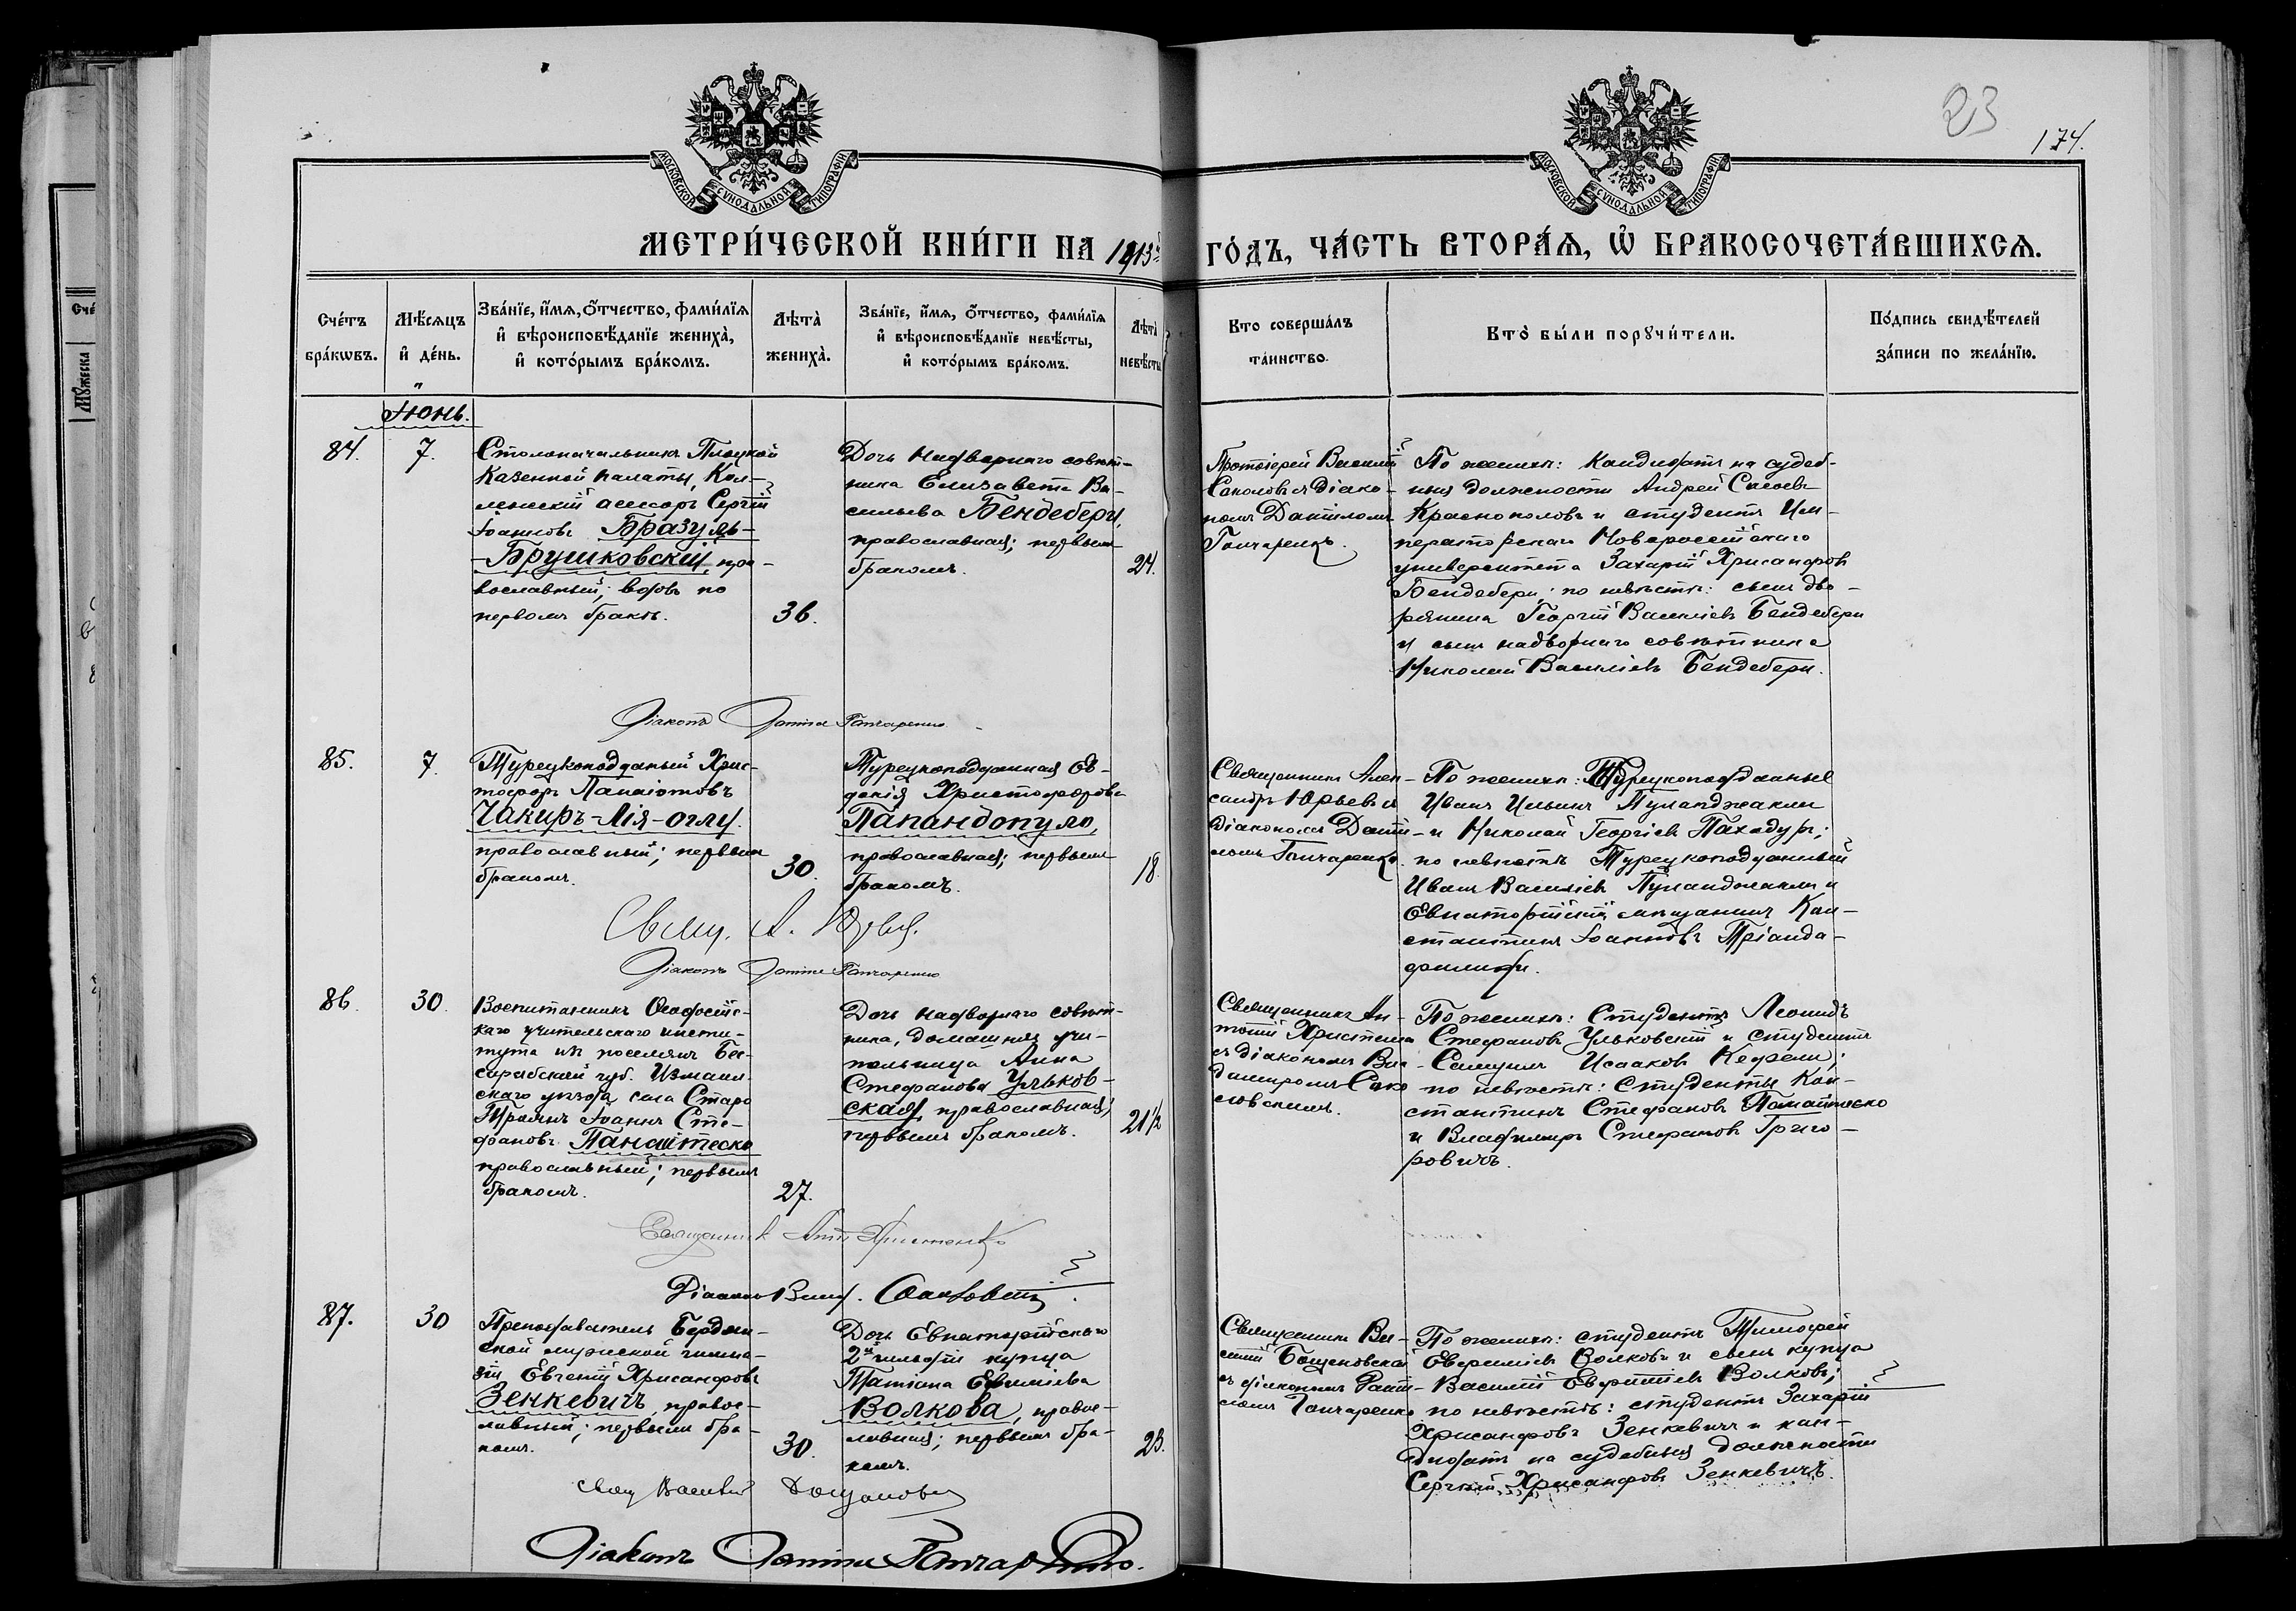 23
174.
МОСКОВСКОЙ СѴНОДАЛЬНОЙ ТИПОГРАФІИ
МОСКОВСКОЙ СѴНОДАЛЬНОЙ ТИПОГРАФІИ
МЕТРИ́ЧЕСКОЙ КНИ́ГИ НА 1913й ГО́ДЪ, ЧА́СТЬ ВТОРА́Я, Ѽ БРАКОСОЧЕТА́ВШИХСЯ.
Сче́тъ бра́кѡвъ.
Мѣ́сяцъ и҆ де́нь.
Зва́нїе, и҆́мя, ѻ҆́тчество, фами́лїя
и҆ вѣроисповѣ́данїе жениха̀,
и҆ кото́рымъ бра́комъ.
Лѣта̀ жениха̀.
Зва́нїе, и҆́мя, ѻ҆́тчество, фами́лїя
и҆ вѣроисповѣ́данїе невѣ́сты,
и҆ кото́рымъ бра́комъ.
Лѣта̀ невѣ́сты
Кто соверша́лъ
та́инство.
Кто̀ бы́ли порꙋчи́тели.
По́дпись свидѣ́телей
за́писи по жела́нїю.
Іюнь.
84.
7.
Столоначальникъ Плоцкой
Казенной палаты, Кол-
лежскій асессоръ Сергій
Іоанновъ Бразуль-
-Брушковскій, пра-
вославный; вдовъ по
первомъ бракѣ.
36.
Дочь Надворнаго совѣт-
ника Елизавета Ва-
сильева Бендебери,
православная; первымъ
бракомъ.
24.
Протоіерей Василій
Соколовъ съ діако-
номъ Даніиломъ
Гончаренко.
По женихѣ: Кандидатъ на судеб-
ныя должности Андрей
Краснополовъ и студентъ Им-
ператорскаго Новороссійскаго
университета Захарій Хрисанфовъ
Бендебери; по невѣстѣ: сынъ дво-
рянина Георгій Василіевъ Бендебери
и сынъ надворнаго совѣтника
Николай Василіевъ Бендебери.
Діаконъ Даніилъ Гончаренко
85.
7.
Турецкоподданый Хрис-
тофоръ Панаіотовъ
Чакиръ-Лія-оглу.
православный; первымъ
бракомъ.
30.
Турецкоподданная Ев-
докія Христофорова
Папандопуло,
православная; первымъ
бракомъ.
18.
Священникъ Алек-
сандръ Юрьевъ съ
діакономъ Даніи-
ломъ Гончаренко.
По женихѣ: Турецкоподданные
Иванъ Ильинъ Пуланджакли
и Николай Георгіевъ Пахадуръ;
по невѣстѣ Турецкоподданный
Иванъ Василіевъ Пуланджакли и
Евпаторійскій мѣщанинъ Кон-
стантинъ Іоанновъ Тріанда-
Свящ. А. Юрьев.
Діаконъ Даніилъ Гончаренко
86.
30.
Воспитанникъ Ѳеодосійс-
каго учительскаго инсти-
тута изъ поселянъ Бес-
сарабской губ. Измаил-
скаго уѣзда села Старо
Троянъ Іоаннъ Сте-
фановъ Панайтеско
православный; первымъ
бракомъ.
27.
Дочь надворнаго совѣт-
ника, домашняя учи-
тельница Анна
Стефанова Ульков-
ская, православная;
первымъ бракомъ.
21½
Священникъ Ан-
тоній Христенко
съ діакономъ Вла-
диміромъ Соко
ловскимъ.
По женихѣ: Студентъ Леонидъ
Стефановъ Ульковскій и студентъ
Самуилъ Исааковъ Кефели;
по невѣстѣ: Студенты Кон-
стантинъ Стефановъ Панайтеско
и Владиміръ Стефановъ Григо-
ровичъ.
Священник Антоній Христенко
Діаконъ Влад.
87.
30
Преподаватель Бердян-
ской мужской гимна-
зіи Евгеній Хрисанфовъ
Зенкевичъ, правос-
лавный; первымъ бра-
комъ.
30.
Дочь Евпаторійскаго
2й гильдіи купца
Татіана Евфиміева
Волкова, правос-
лавная; первымъ бра-
комъ.
23.
Священникъ Ва-
силій
съ діакономъ Даніи-
ломъ Гончаренко
По женихѣ: студентъ Тимофей
Евфиміевъ Волковъ и сынъ купца
Василій Евфиміевъ Волковъ;
по невѣстѣ: студентъ Захарій
Хрисанфовъ Зенкевичъ и кан-
дидатъ на судебныя должности
Сергѣй Хрисанфовъ Зенкевичъ.
Свящ Василій
Діаконъ Даніилъ Гончаренко.